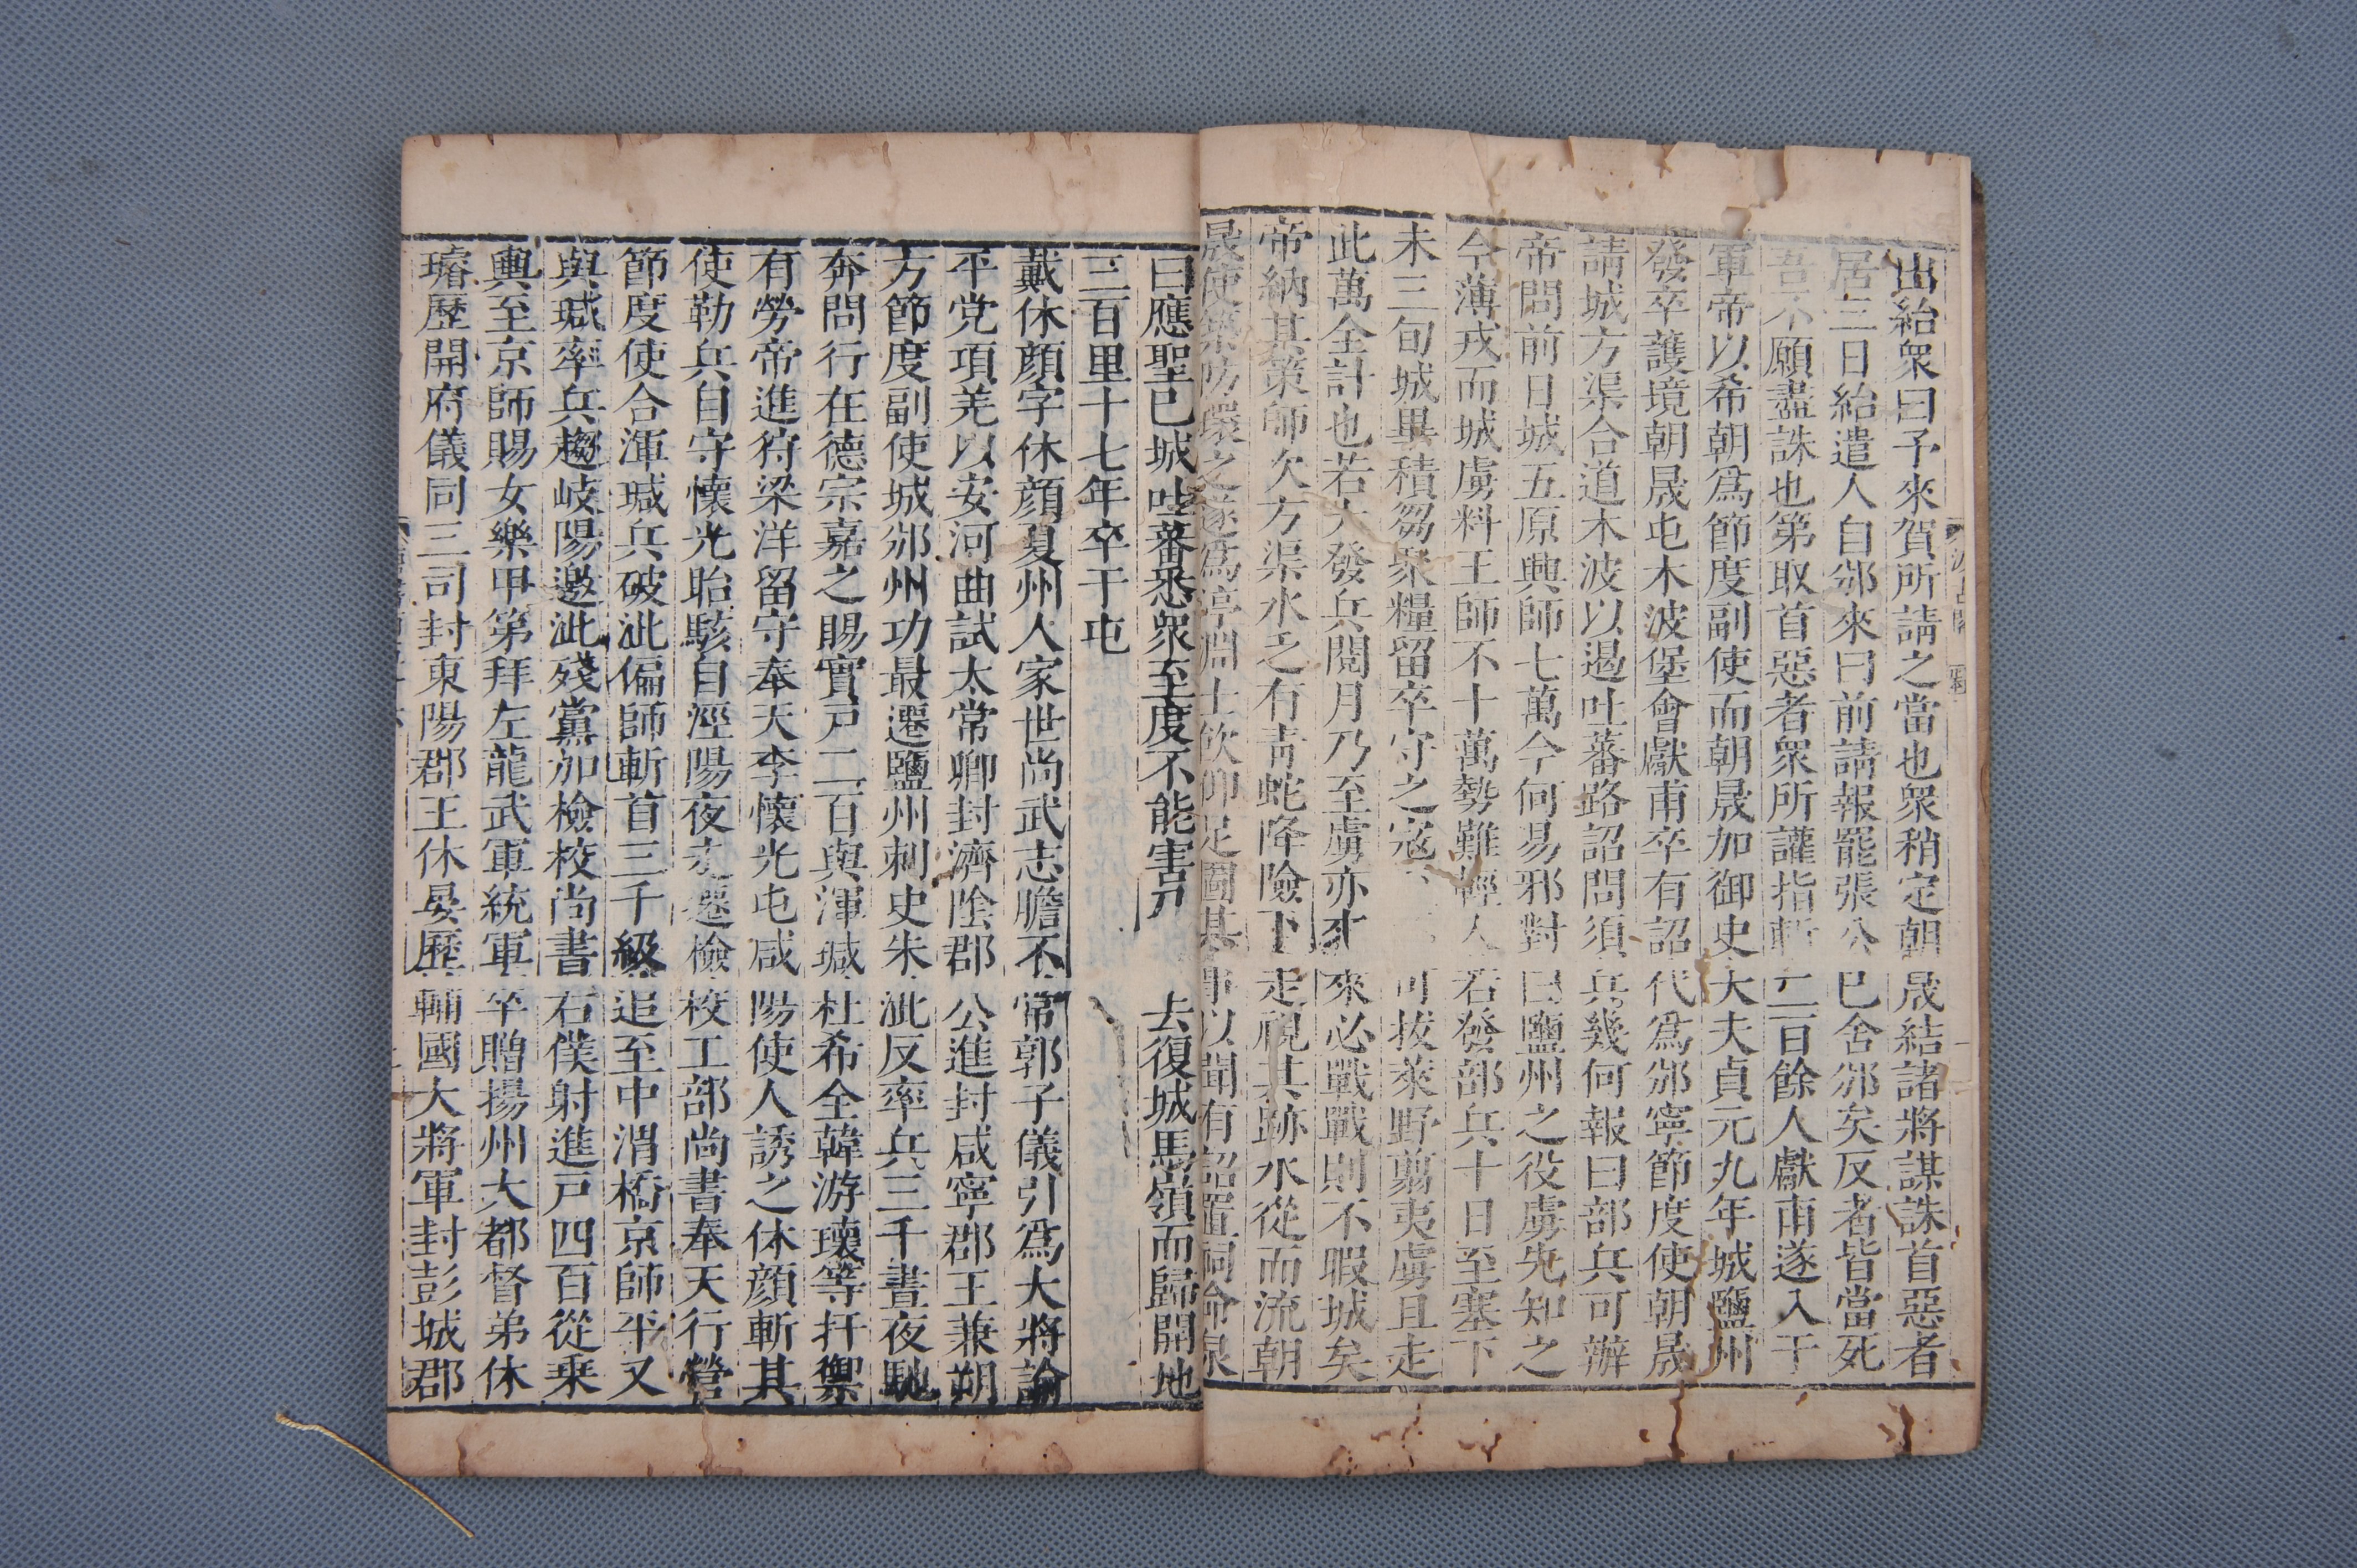 出紿衆曰予來賀所請之當也衆稍定朝晟結諸將謀誅首惡者
居三日紿遣人自邠來曰前請報罷張公已舍邠矣反者皆當死
吾不願盡誅也第取首惡者衆所讙指斬二百餘人獻甫遂入于
軍帝以希朝爲節度副使而朝晟加御史大夫貞元九年城鹽州
發卒護境朝晟屯木波堡會獻甫卒有詔代爲邠寧節度使朝晟
請城方渠合道木波以遏吐蕃路詔問須兵幾何報曰部兵可辦
帝問前日城五原興師七萬今何易邪對曰鹽州之役虜先知之
今薄戎而城虜料王師不十萬勢難輕入若發部兵十日至塞下
未三旬城畢積芻聚糧留卒守之寇可拔萊野翦夷虜且走
此萬全計也若大發兵閱月乃至虜亦來來必戰戰則不暇城矣
帝納其策師次方渠水乏有靑蛇降險下走視其跡水從而流朝
晟使築防環之遂爲渟淵士飲仰足圖其事以聞有詔置祠命泉
曰應聖已城吐蕃悉衆至度不能害乃去復城馬嶺而歸開地
三百里十七年卒于屯
戴休顔字休顔夏州人家世尚武志膽不常郭子儀引爲大將諭
平党項羌以安河曲試太常卿封濟陰郡公進封咸寧郡王兼朔
方節度副使城邠州功最遷鹽州刺史朱泚反率兵三千晝夜馳
奔問行在德宗嘉之賜實戸二百與渾瑊杜希全韓游瓌等扞禦
有勞帝進狩梁洋留守奉天李懷光屯咸陽使人誘之休顔斬其
使勒兵自守懷光眙駭自涇陽夜走遷檢校工部尚書奉天行營
節度使合渾瑊兵破泚偏師斬首三千級追至中渭橋京師平又
與瑊率兵趨岐陽邀泚殘黨加檢校尚書右僕射進戸四百從乗
輿至京師賜女樂甲第拜左龍武軍統軍卒贈揚州大都督弟休
璿歷開府儀同三司封東陽郡王休晏歷輔國大將軍封彭城郡